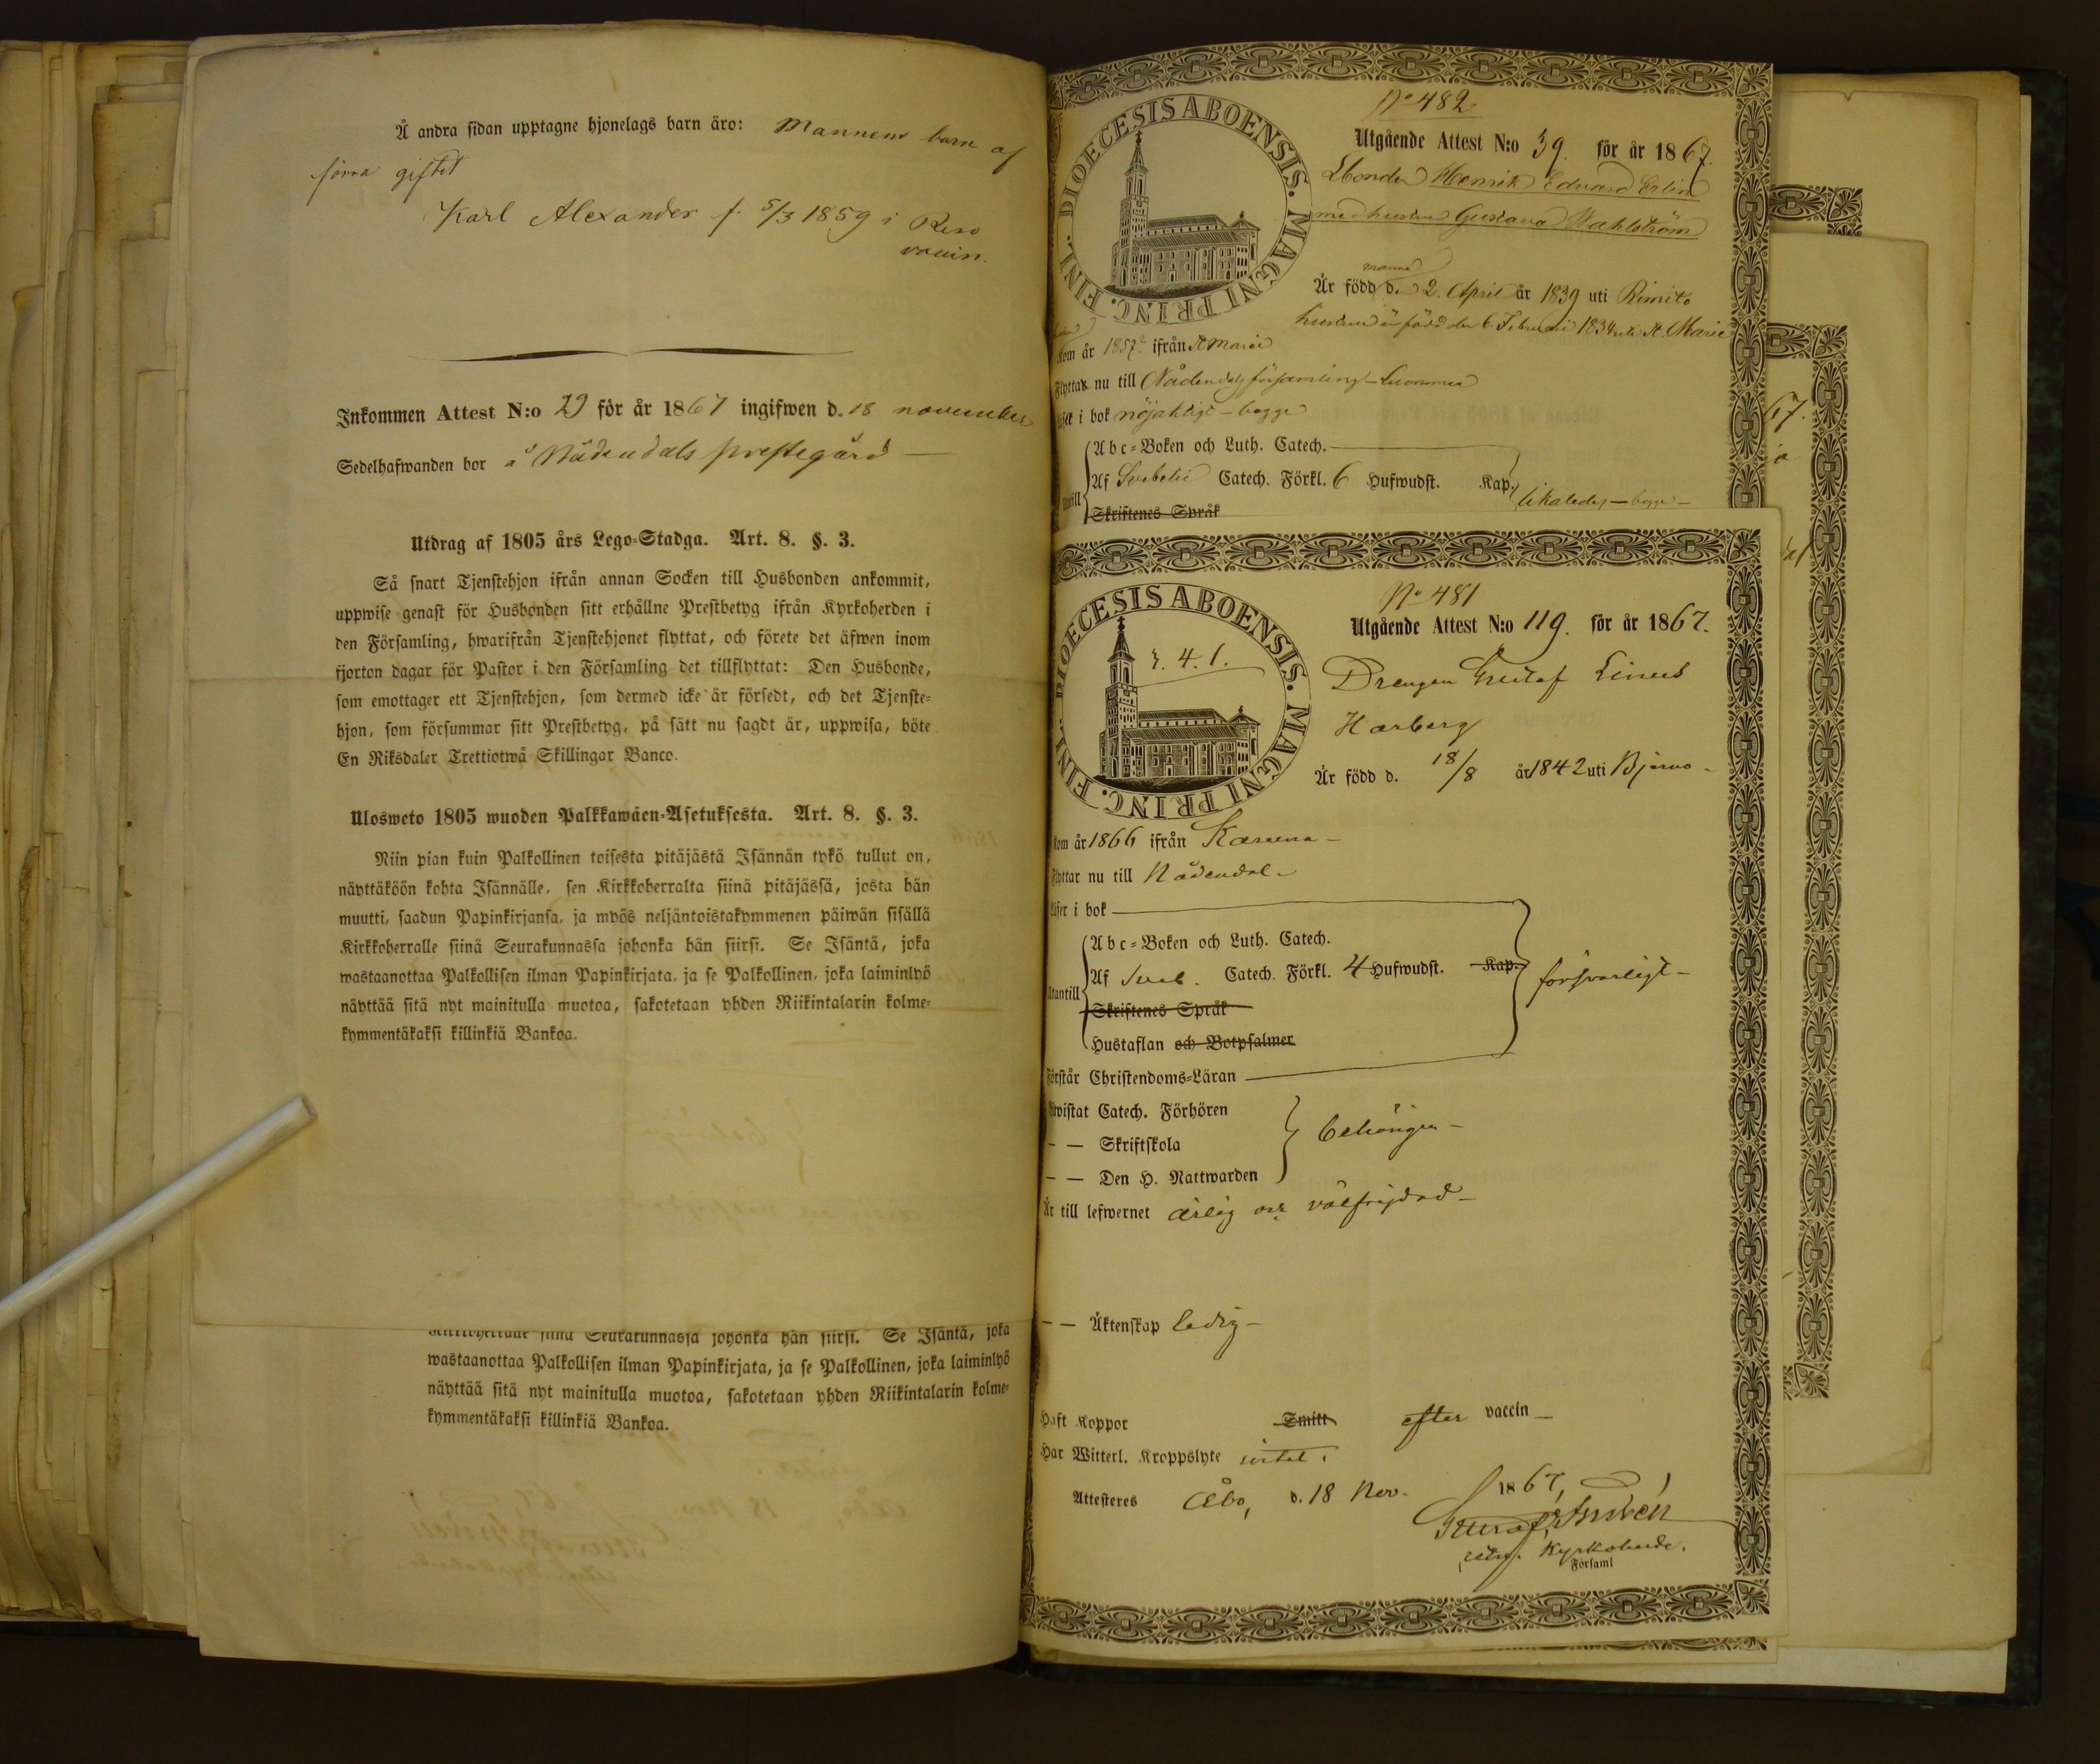 Å andra sidan upptagne hjonelags barn äro: Mannens barn af
förra giftet
Karl Alexander f. 5/3 1859 i Reso
vaccin.
Inkommen Attest N:o 29 för år 1867 ingifwen d. 18 november
Sedelhafwanden bor å Nådendals prestegård
Utdrag af 1805 års Lego-Stadga. Art. 8. §. 3.
Så snart Tjenstehjon ifrån annan Socken till Husbonden ankommit,
uppwise genast för Husbonden sitt erhållne Prestbetyg ifrån Kyrkoherden i
den Församling, hwarifrån Tjenstehjonet flyttat, och förete det äfwen inom
fjorton dagar för Pastor i den Församling det tillflyttat: Den Husbonde,
som emottager ett Tjenstehjon, som dermed icke är försedt, och det Tjenste-
hjon, som försummar sitt Prestbetyg, på sätt nu sagdt är, uppwisa, böte
En Riksdaler Trettiotwå Skillingar Banco.
Ulosweto 1805 wuoden Palkkawäen-Asetuksesta. Art. 8. §. 3.
Niin pian kuin Palkollinen toisesta pitäjästä Isännän tykö tullut on,
näyttäköön kohta Isännälle, sen Kirkkoherralta siinä pitäjässä, josta hän
muutti, saadun Papinkirjansa, ja myös neljäntoistakymmenen päiwän sisällä
Kirkkoherralle siinä Seurakunnassa johonka hän siirsi. Se Isäntä, joka
wastaanottaa Palkollisen ilman Papinkirjata, ja se Palkollinen, joka laiminlyö
näyttää sitä nyt mainitulla muotoa, sakotetaan yhden Riikintalarin kolme-
kymmentäkaksi killinkiä Bankoa.
Kirkkoherralle siinä Seurakunnassa johonka hän siirsi. Se Isäntä, joka
wastaanottaa Palkollisen ilman Papinkirjata, ja se Palkollinen, joka laiminlyö
näyttää sitä nyt mainitulla muotoa, sakotetaan yhden Riikintalarin kolme-
kymmentäkaksi killinkiä Bankoa.
DIOECESIS ABOENSIS. MAGNI PRINC. FINL.
No 482
Utgående Attest N:o 39. för år 1867.
Bonden Henrik Eduard Erlin
med hustrun Gustava Wahlström
mannen
Är född d. 2. April år 1839 uti Rimito
hustrun är född den 6. Februari 1834 uti St. Marie
Kom år 1857 ifrån St Marie
Flyttar nu till Nådendals församling - Luonnmaa
Läser i bok nöjaktigt - begge
Abc-Boken och Luth. Catech.
Af Svebelii Catech. Förkl. 6 Hufwudst. Kap. likaledes - begge -
Skriftenes Språk
DIOECESIS ABOENSIS. MAGNI PRINC. FINL.
r. 4. 1.
No 481
Utgående Attest N:o 119. för år 1867.
Drengen Gustaf Linus
Harberg
Är född d. 18/8 år 1842 uti Bjerno -
Kom år 1866 ifrån Karuna -
Flyttar nu till Nådendal -
Läser i bok
Abc-Boken och Luth. Catech.
Utantill Af Sveb. Catech. Förkl. 4 Hufwudst. Kap. försvarligt -
Skriftenes Språk
Hustaflan och Botpsalmer
Förstår Christendoms-Läran
Bewistat Catech. Förhören
- - Skriftskola behörigen -
- - Den H. Nattwarden
Är till lefwernet ärlig och välfrejdad -
- - Äktenskap ledig -
Haft Koppor Smitt efter vaccin -
Har Witterl. Kroppslyte intet.
Attesteres Åbo, d. 18 Nov. 1867,
Kyrkoherde.
Församl
67.